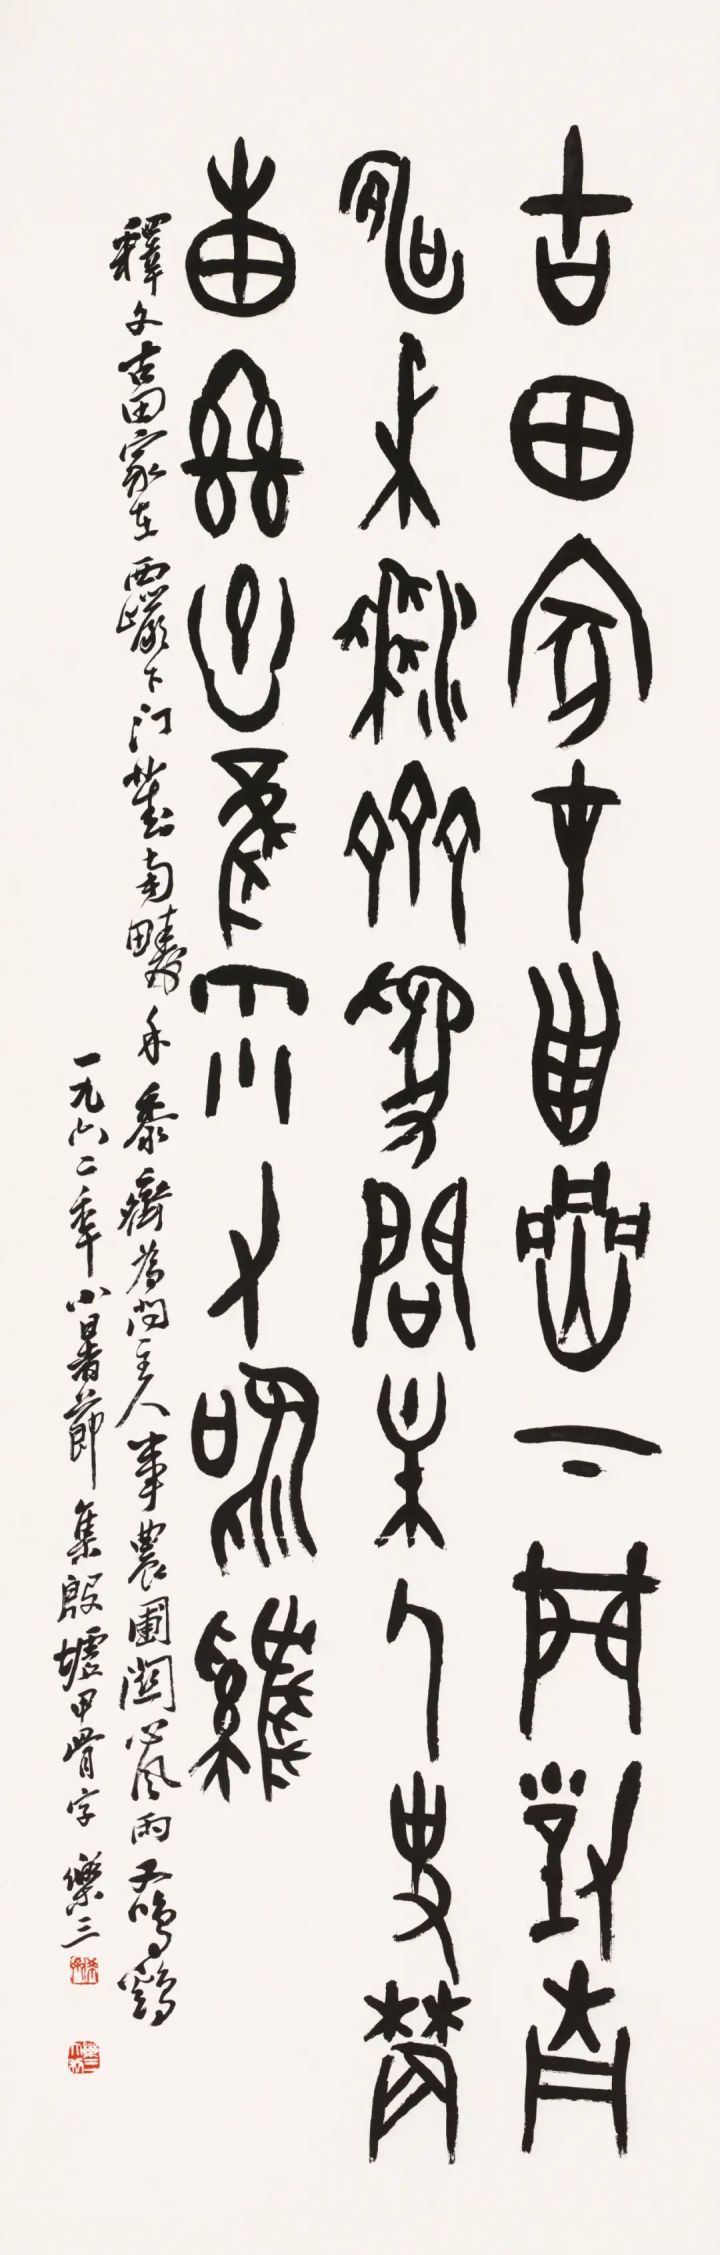 古田家在西巖下門對南
疇禾黍齊為問主人事農
圃關心風雨又鳴雞
釋文古田家在西巖下门對南疇禾黍齊為问主人事農圃関心風雨又鳴鷄
一九六二年小暑節集殷墟甲骨字樂三